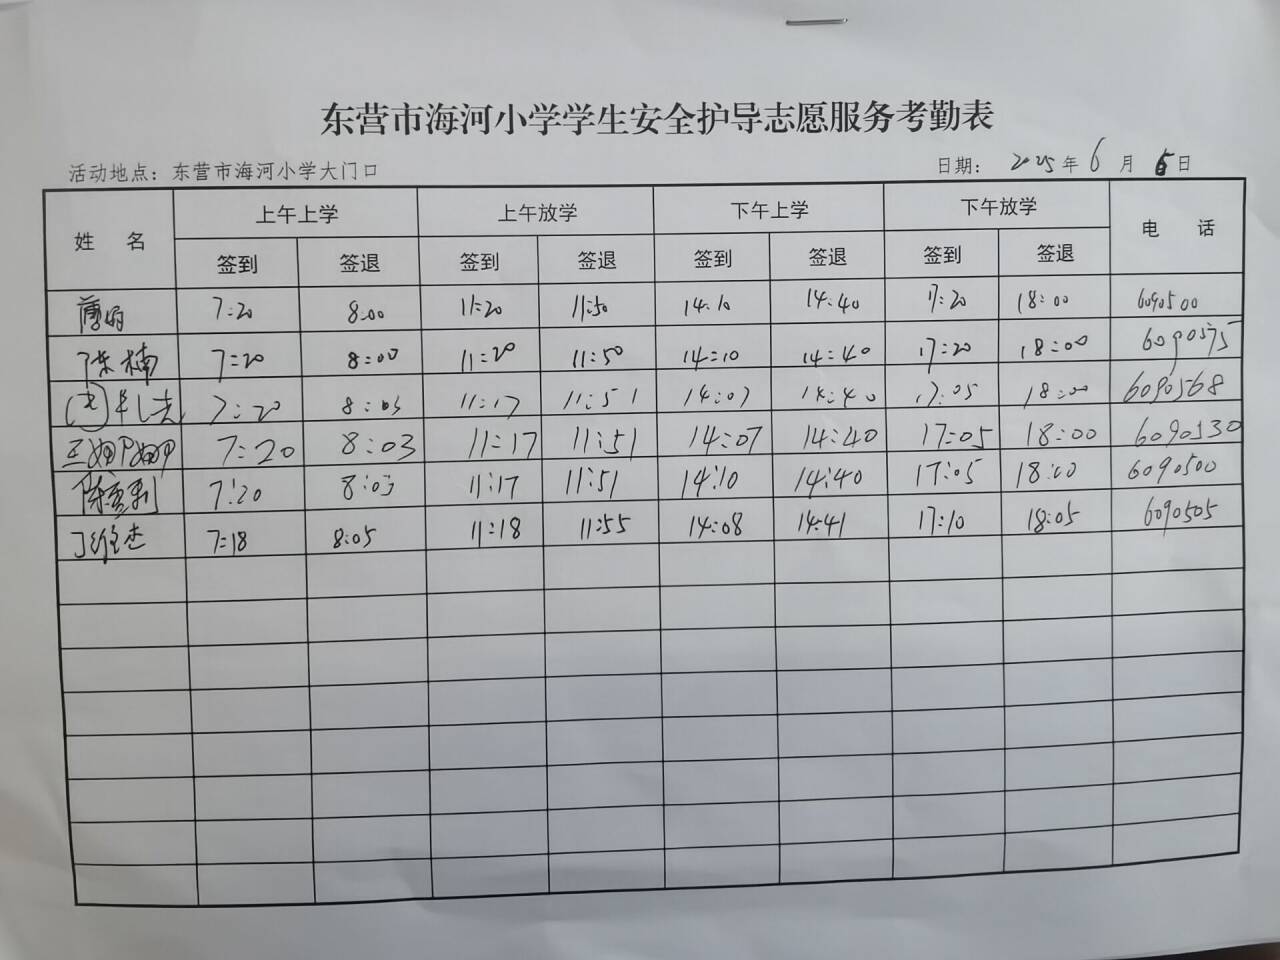 东营市海河小学学生安全护导志愿服务考勤表
活动地点：东营市海河小学大门口 日期：2025年6月6日
姓 名 上午上学 上午放学 下午上学 下午放学 电 话
签到 签退 签到 签退 签到 签退 签到 签退
7:20 8:00 11:20 11:50 14:10 14:40 17:20 18:00 6090500
陈楠 7:20 8:00 11:20 11:50 14:10 14:40 17:20 18:00 6090575
7:20 8:03 11:17 11:51 14:07 14:40 17:05 18:00 6090568
王姗姗 7:20 8:03 11:17 11:51 14:07 14:40 17:05 18:00 6090530
7:20 8:03 11:17 11:51 14:10 14:40 17:05 18:00 6090500
丁维杰 7:18 8:05 11:18 11:55 14:08 14:41 17:10 18:05 6090505